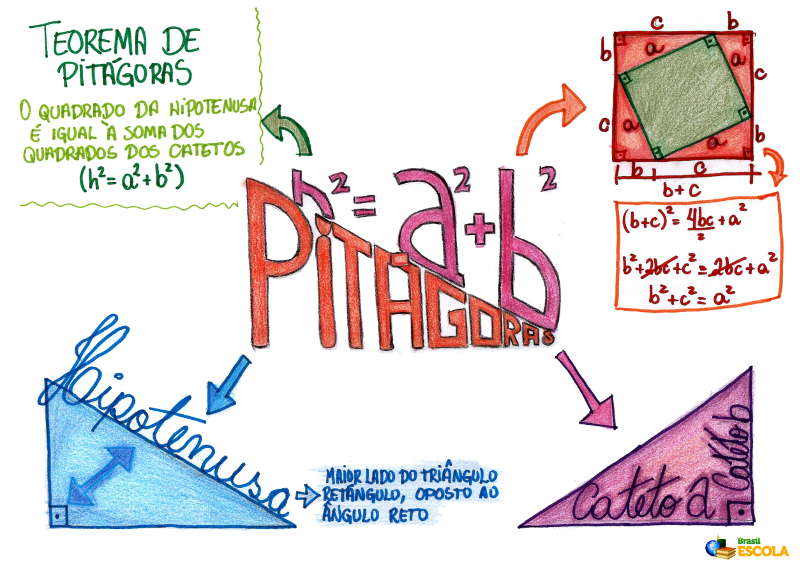 TEOREMA DE
PITÁGORAS
O QUADRADO DA HIPOTENUSA
É IGUAL À SOMA DOS
QUADRADOS DOS CATETOS
(h²=a²+b²)
h²=a²+b²
PITÁGORAS
c b
b a a c
c a a b
b c
b+c
(b+c)²=4bc/2+a²
b²+2bc+c²=2bc+a²
b²+c²=a²
Hipotenusa
MAIOR LADO DO TRIÂNGULO
RETÂNGULO, OPOSTO AO
ÂNGULO RETO
Cateto a
Cateto b
Brasil
ESCOLA